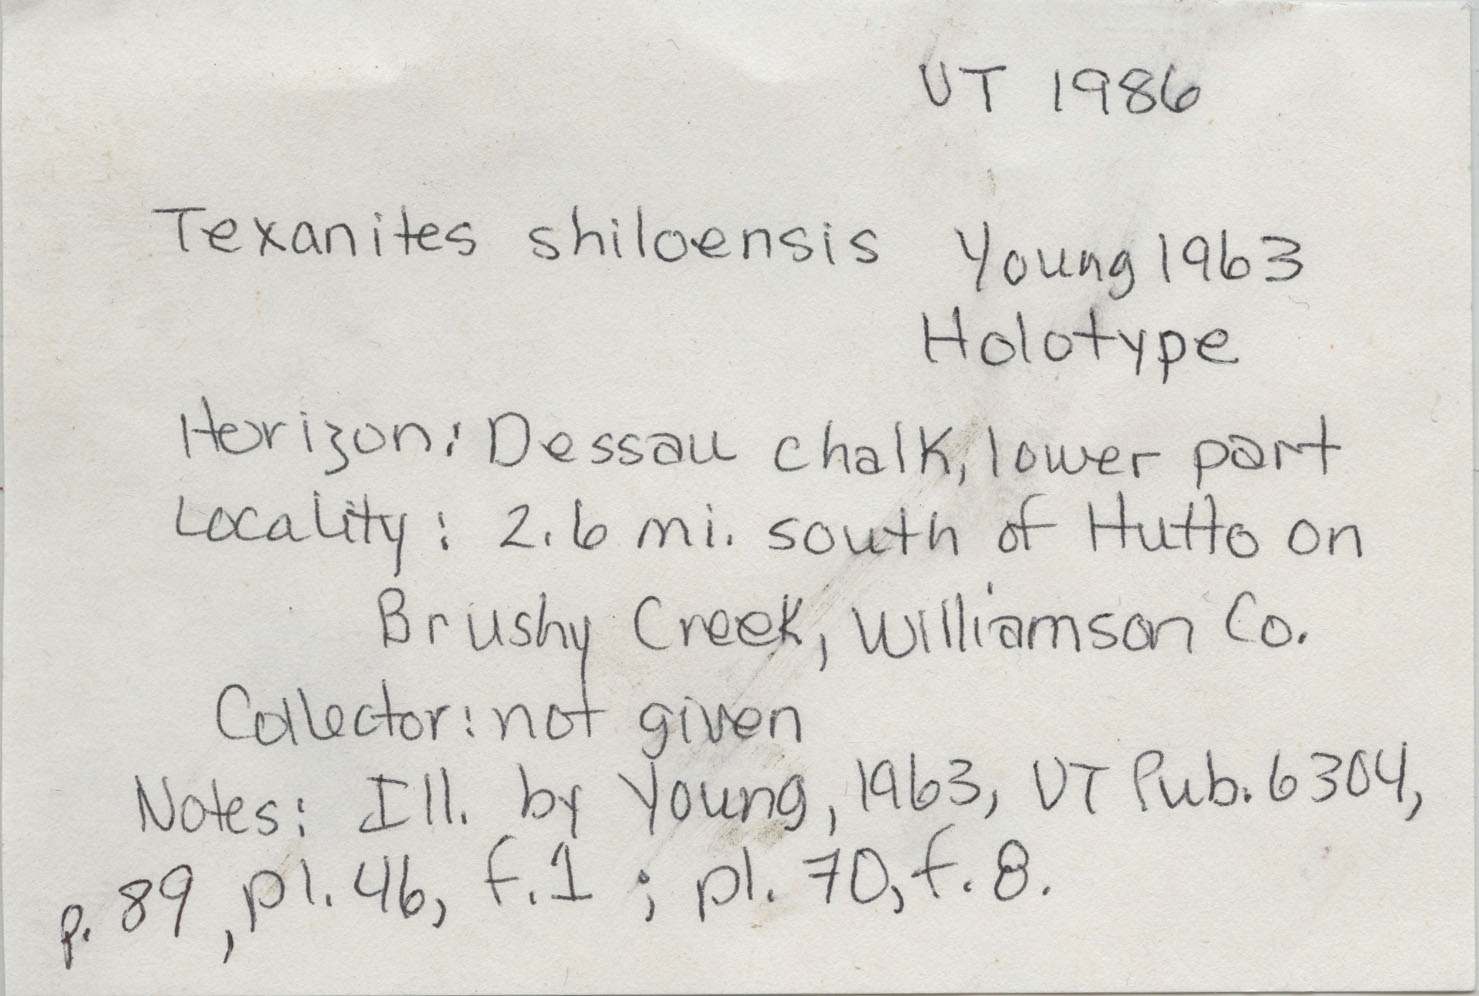 UT 1986
Texanites shiloensis Young 1963
Holotype
Horizon: Dessau chalk, lower part
Locality: 2.6 mi. south of Hutto on
Brushy Creek, Williamson Co.
Collector: not given
Notes: Ill. by Young, 1963, UT Pub. 6304,
p. 89, pl. 46, f. 1; pl. 70, f. 8.